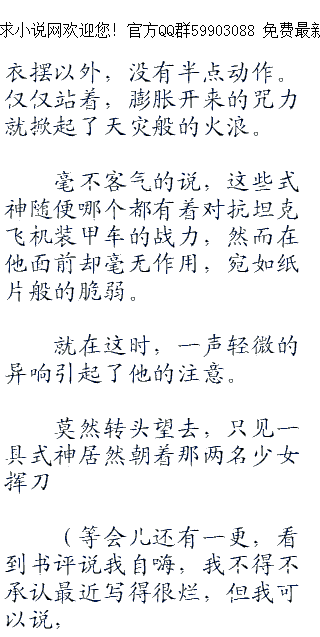 求小说网欢迎您! 官方QQ群59903088 免费最新
衣摆以外，没有半点动作。
仅仅站着，膨胀开来的咒力
就掀起了天灾般的火浪。
毫不客气的说，这些式
神随便哪个都有着对抗坦克
飞机装甲车的战力，然而在
他面前却毫无作用，宛如纸
片般的脆弱。
就在这时，一声轻微的
异响引起了他的注意。
莫然转头望去，只见一
具式神居然朝着那两名少女
挥刀
（等会儿还有一更，看
到书评说我自嗨，我不得不
承认最近写得很烂，但我可
以说，